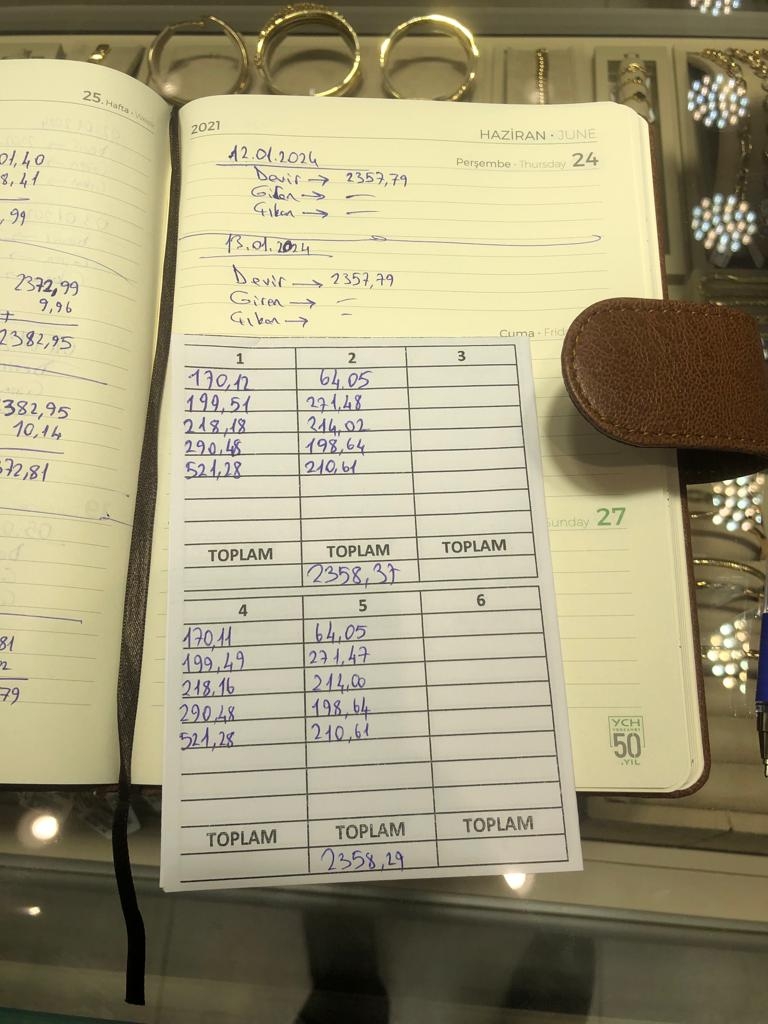 25. Hafta
01,40
8,41
,99
2372,99
9,96
+
2382,95
382,95
10,14
372,81
81
2
79
2021
HAZİRAN · JUNE
Perşembe · Thursday 24
12.01.2024
Devir → 2357,79
Giren → —
Çıkan → —
13.01.2024
Devir → 2357,79
Giren → —
Çıkan → —
Cuma · Frid
1 2 3
170,12 64,05
199,51 271,48
218,18 214,02
290,48 198,64
521,28 210,61
unday 27
TOPLAM TOPLAM TOPLAM
2358,37
4 5 6
170,11 64,05
199,49 271,47
218,16 214,00
290,48 198,64
521,28 210,61
YCH
50
.YIL
TOPLAM TOPLAM TOPLAM
2358,29